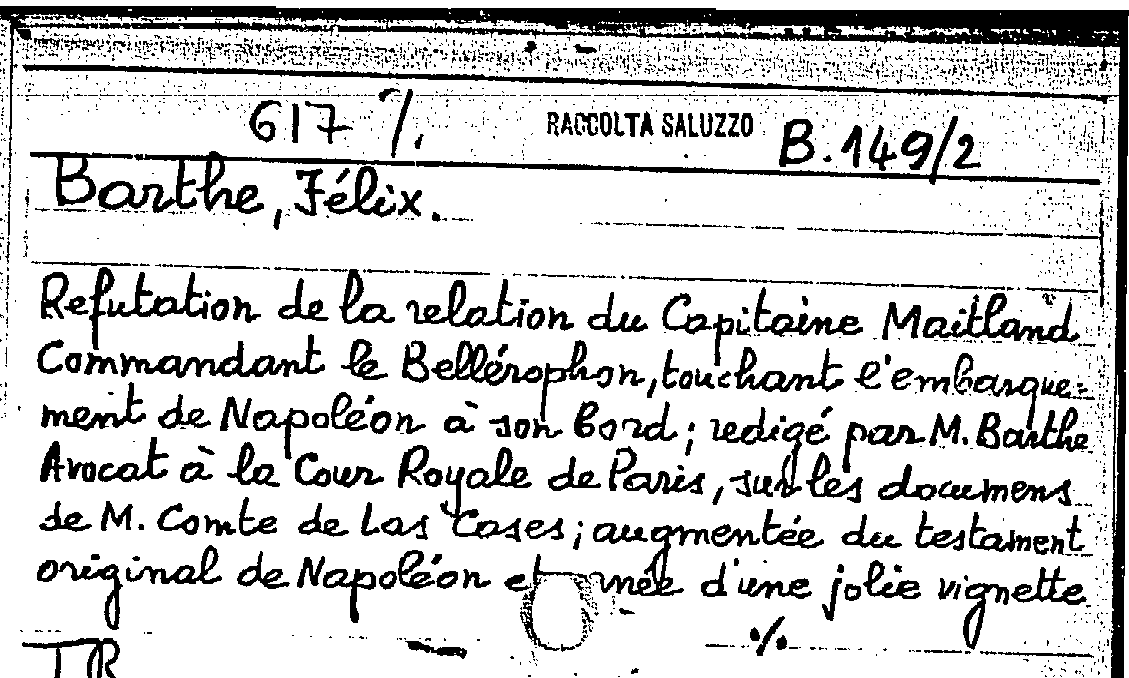 617 ./. RACCOLTA SALUZZO B.149/2
Barthe, Félix.
Refutation de la relation du Capitaine Maitland
Commandant le Bellérophon, touchant l'embarque=
ment de Napoléon à son bord; redigé par M. Barthe
Avocat à la Cour Royale de Paris, sur les documens
de M. Comte de Las Cases; augmentée du testament
original de Napoléon et d'une jolie vignette
./.